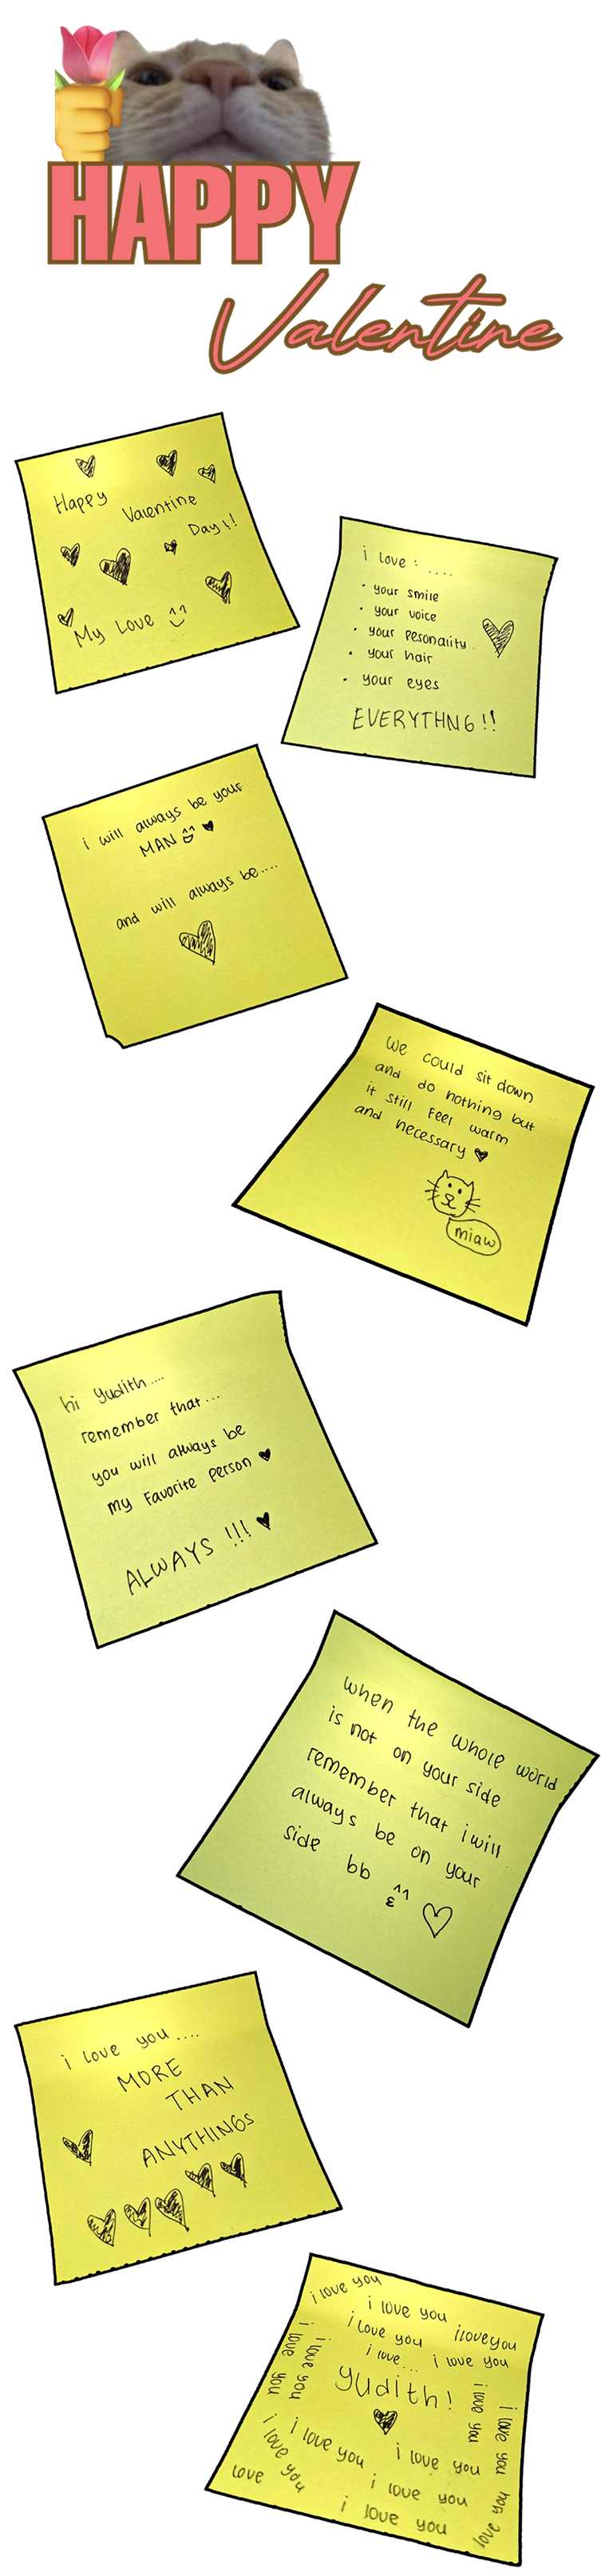 HAPPY
Valentine
Happy
Valentine
Day!!
My Love
i love : ....
• your smile
• your voice
• your pesonality
• your hair
• your eyes
EVERYTHNG!!
i will always be your
MAN
and will always be....
we could sit down
and do nothing but
it still feel warm
and necessary
miaw
hi yudith....
remember that...
you will always be
my favorite person
ALWAYS !!!
when the whole world
is not on your side
remember that i will
always be on your
side bb
i love you ....
MORE
THAN
ANYTHINGS
i love you
i love you
i love you
iloveyou
i love...
i love you
i love you
i love you
yudith!
i love you
i love you
i love you
i love you
i love you
love
i love you
i love you
love you